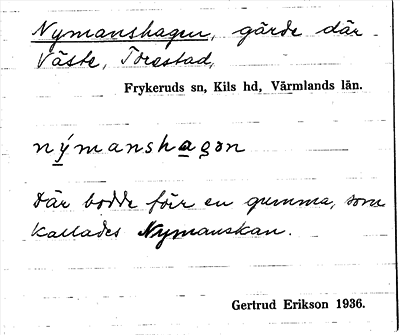 Nymanshagen, gärde där
Väste, Torastad,
Frykeruds sn, Kils hd, Värmlands län.
nýmanshagən
Där bodde förr en gumma, som
kallades Nymanskan.
Gertrud Erikson 1936.